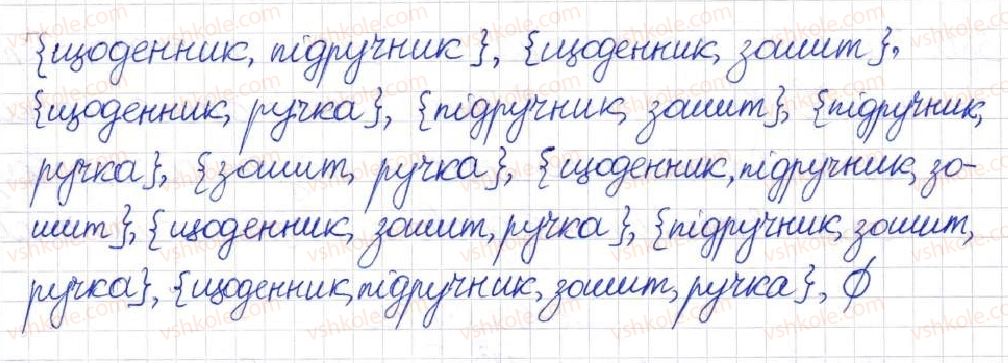 {щоденник, підручник}, {щоденник, зошит},
{щоденник, ручка}, {підручник, зошит}, {підручник,
ручка}, {зошит, ручка}, {щоденник, підручник, зо-
шит}, {щоденник, зошит, ручка}, {підручник, зошит,
ручка}, {щоденник, підручник, зошит, ручка}, ∅